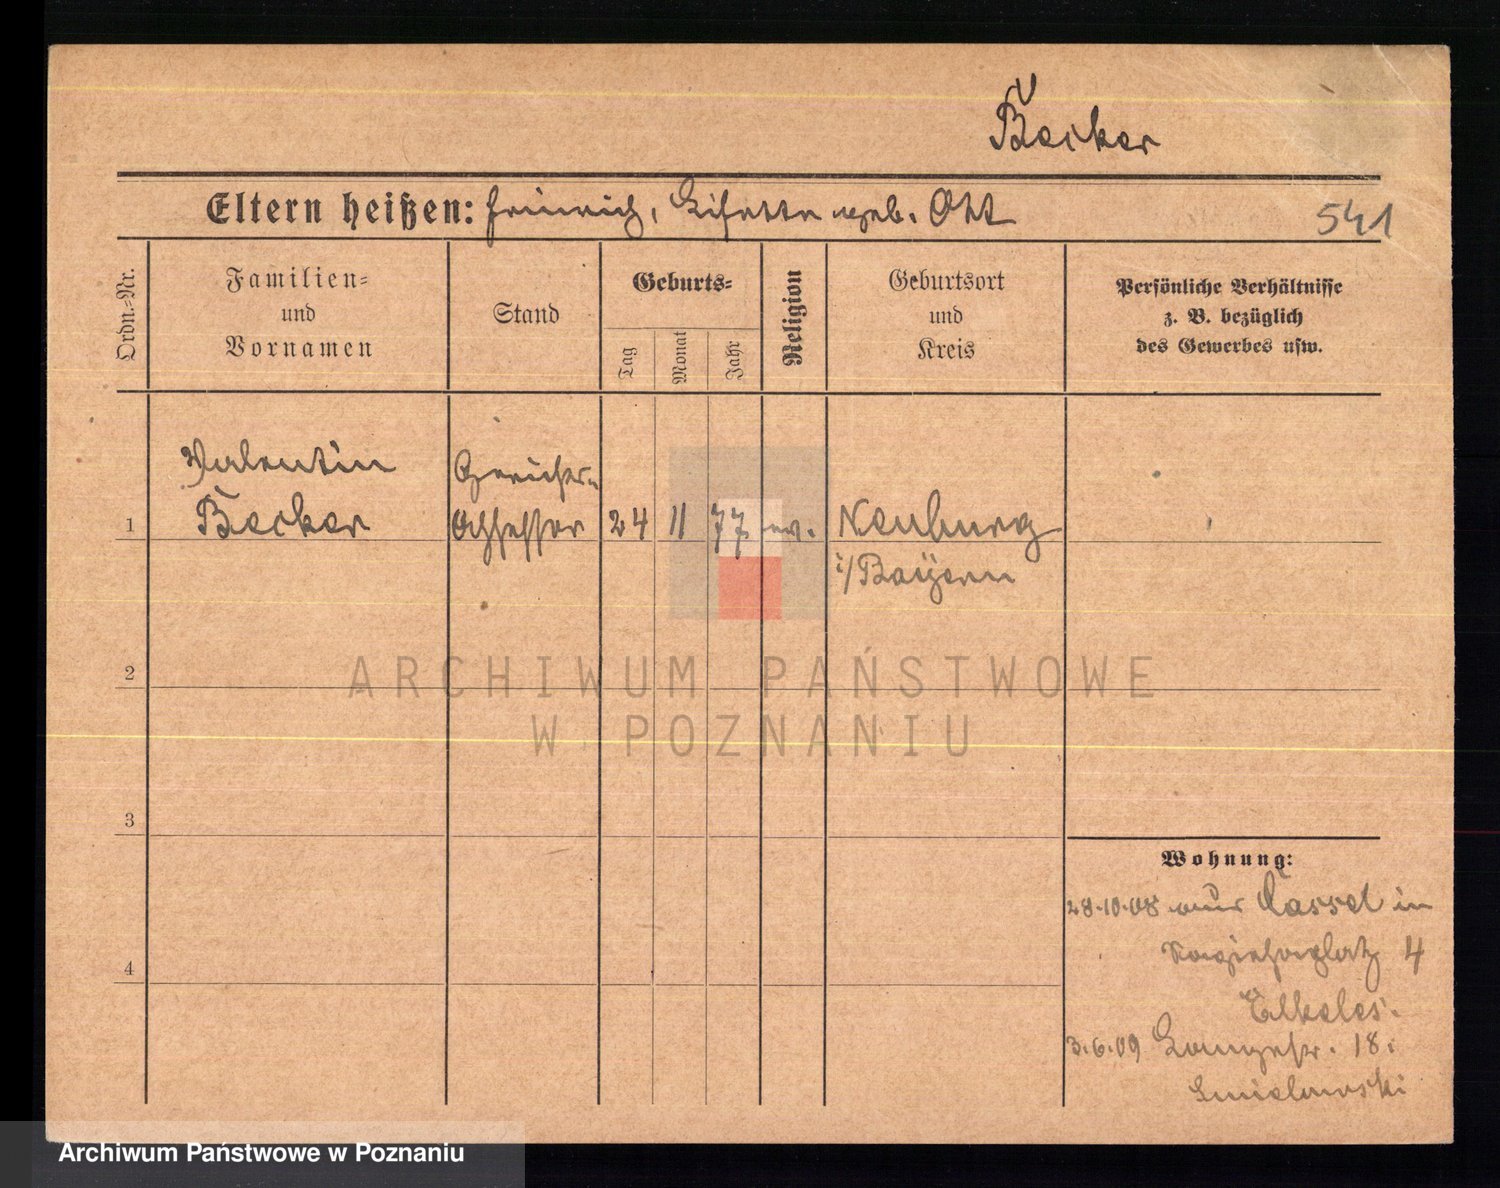 Becker
Eltern heißen: Heinrich, Lisette geb. Ott
541
Ordn.=Nr.
Familien=
und
Vornamen
Stand
Geburts=
Tag
Monat
Jahr
Religion
Geburtsort
und
Kreis
Persönliche Verhältnisse
z. B. bezüglich
des Gewerbes usw.
Valentin
Becker
Gerichts-
Assessor
1
24
11
77
ev.
Neuburg
i/Bayern
2
3
4
Wohnung:
28.10.08 aus Cassel in
4
Elkeles.
3.6.09 Langestr. 18.
Smielowski
ARCHIWUM PAŃSTWOWE
W POZNANIU
Archiwum Państwowe w Poznaniu